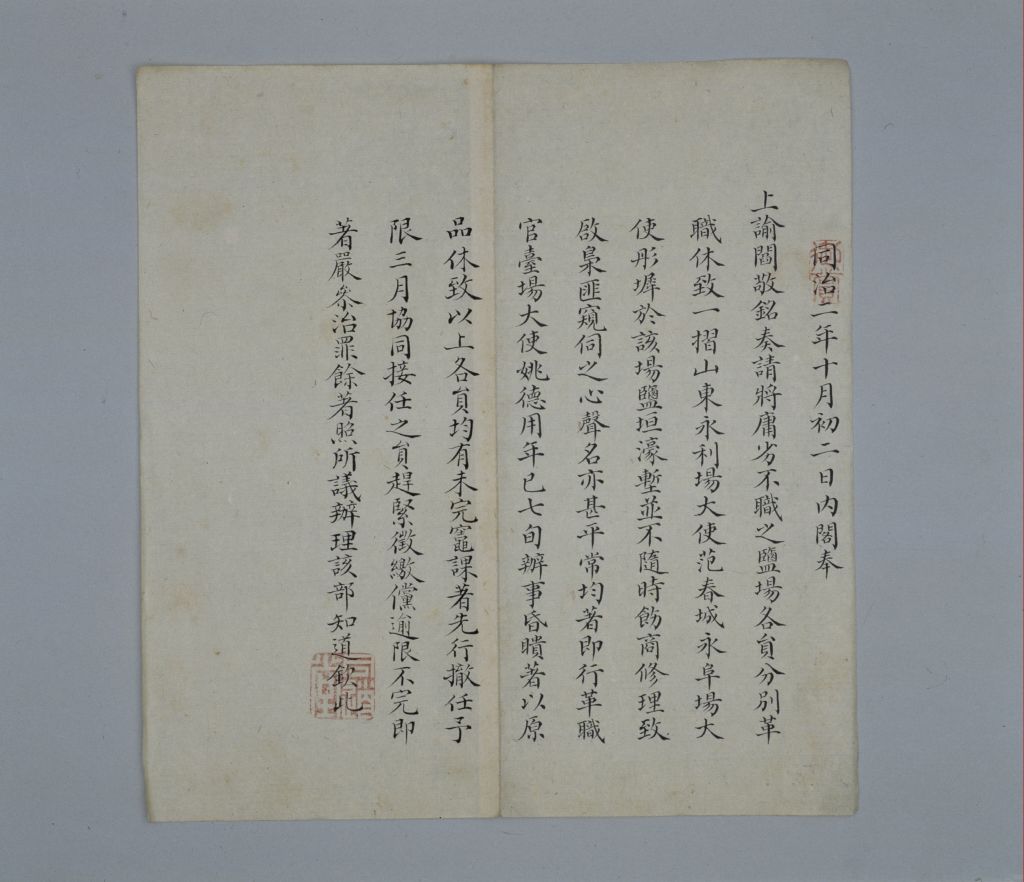 同治二年十月初二日內閣奉
上諭閻敬銘奏請將庸劣不職之鹽場各員分別革
職休致一摺山東永利場大使范春城永阜場大
使彤墀於該場鹽垣濠塹並不隨時飭商修理致
啟梟匪窺伺之心聲名亦甚平常均著即行革職
官臺場大使姚德用年已七旬辦事昏瞶著以原
品休致以上各員均有未完竈課著先行撤任予
限三月協同接任之員趕緊徵繳儻逾限不完即
著嚴參治罪餘著照所議辦理該部知道欽此